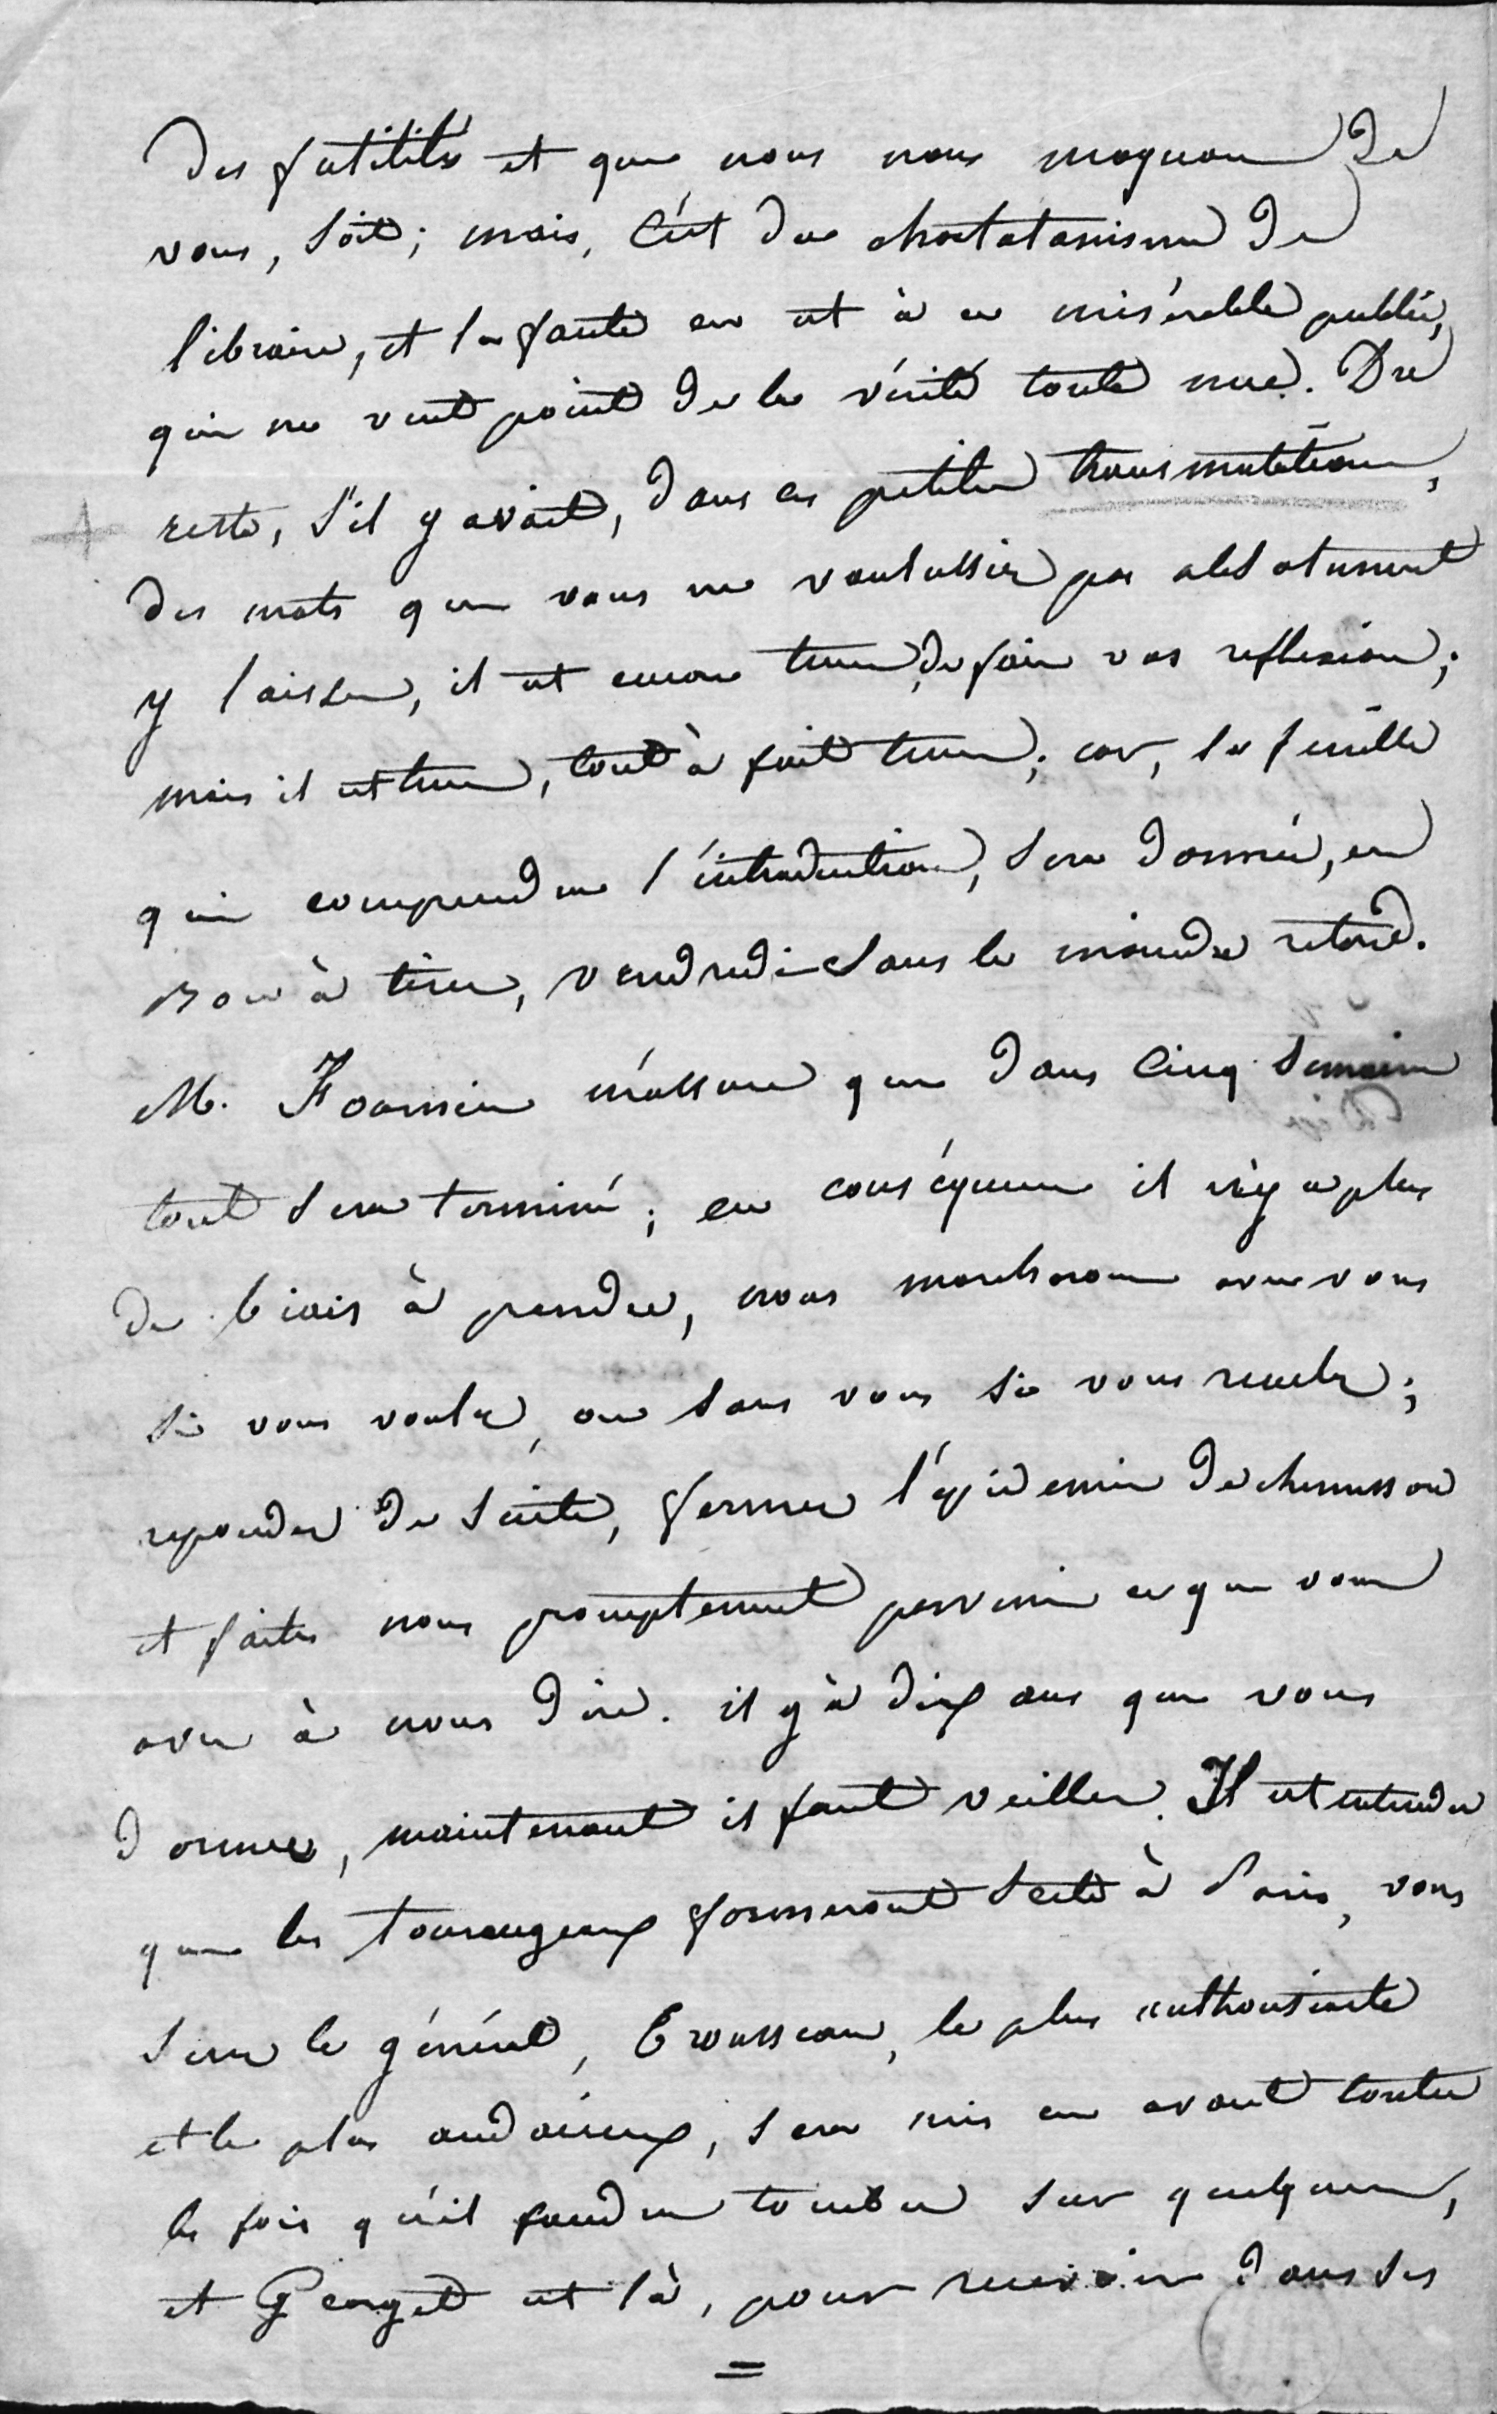 des futilités et que nous nous moquons de
vous, soit; mais, c'est du charlatanisme de
libraire, et la faute en est à ce misérable public,
qui ne veut point de la vérité toute nue. Du
reste, s'il y avait, dans ces petites transmutations,
des mots que vous ne voulussiez pas absolument
y laisser, il est encore tems de faire vos reflexions;
mais il est tems, tout à fait tems; car, la feuille
qui comprendra l'introduction, sera donnée, en
Bon à tirer, vendredi sans le moindre retard.
M. m'assure que dans cinq semaines
tout sera terminé; en conséquence il n'y a plus
de biais à prendre, nous marcherons avec vous
si vous voulez, ou sans vous si vous reculez;
repondez de suite, fermez l'épidemie de chenusson
et faites nous promptement parvenir ce que vous
avez à nous dire. il y à dix ans que vous
dormez, maintenant il faut veiller. Il est entendu
que les tourangeaux formeront secte à Paris, vous
serez le général, Trousseau, le plus enthousiaste
et le plus audacieux, sera mis en avant toutes
les fois qu'il faudra tomber sur quelqu'un,
et Georget est là, pour recevoir dans ses
=